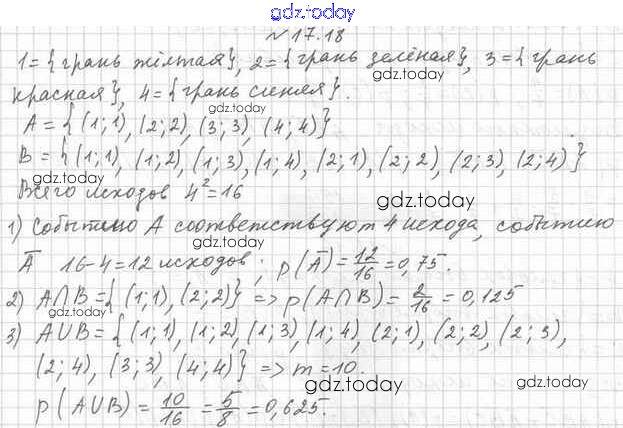 gdz.today
№ 17.18
1 = {грань жёлтая}, 2 = {грань зелёная}, 3 = {грань
gdz.today
красная}, 4 = {грань синяя}.
gdz.today
A = { (1; 1), (2; 2), (3; 3), (4; 4)}
B = { (1; 1), (1; 2), (1; 3), (1; 4), (2; 1), (2; 2), (2; 3), (2; 4) }
gdz.today
gdz.today
Всего исходов 4² = 16
gdz.today
1) Событию A соответствуют 4 исхода, событию
gdz.today
Ā 16-4=12 исходов; p(Ā) = 12/16 = 0,75.
2) A∩B = { (1; 1), (2; 2)} => p(A∩B) = 2/16 = 0,125
gdz.today
3) A∪B = { (1; 1), (1; 2), (1; 3), (1; 4), (2; 1), (2; 2), (2; 3),
(2; 4), (3; 3), (4; 4)} => m = 10.
gdz.today
gdz.today
p(A∪B) = 10/16 = 5/8 = 0,625.